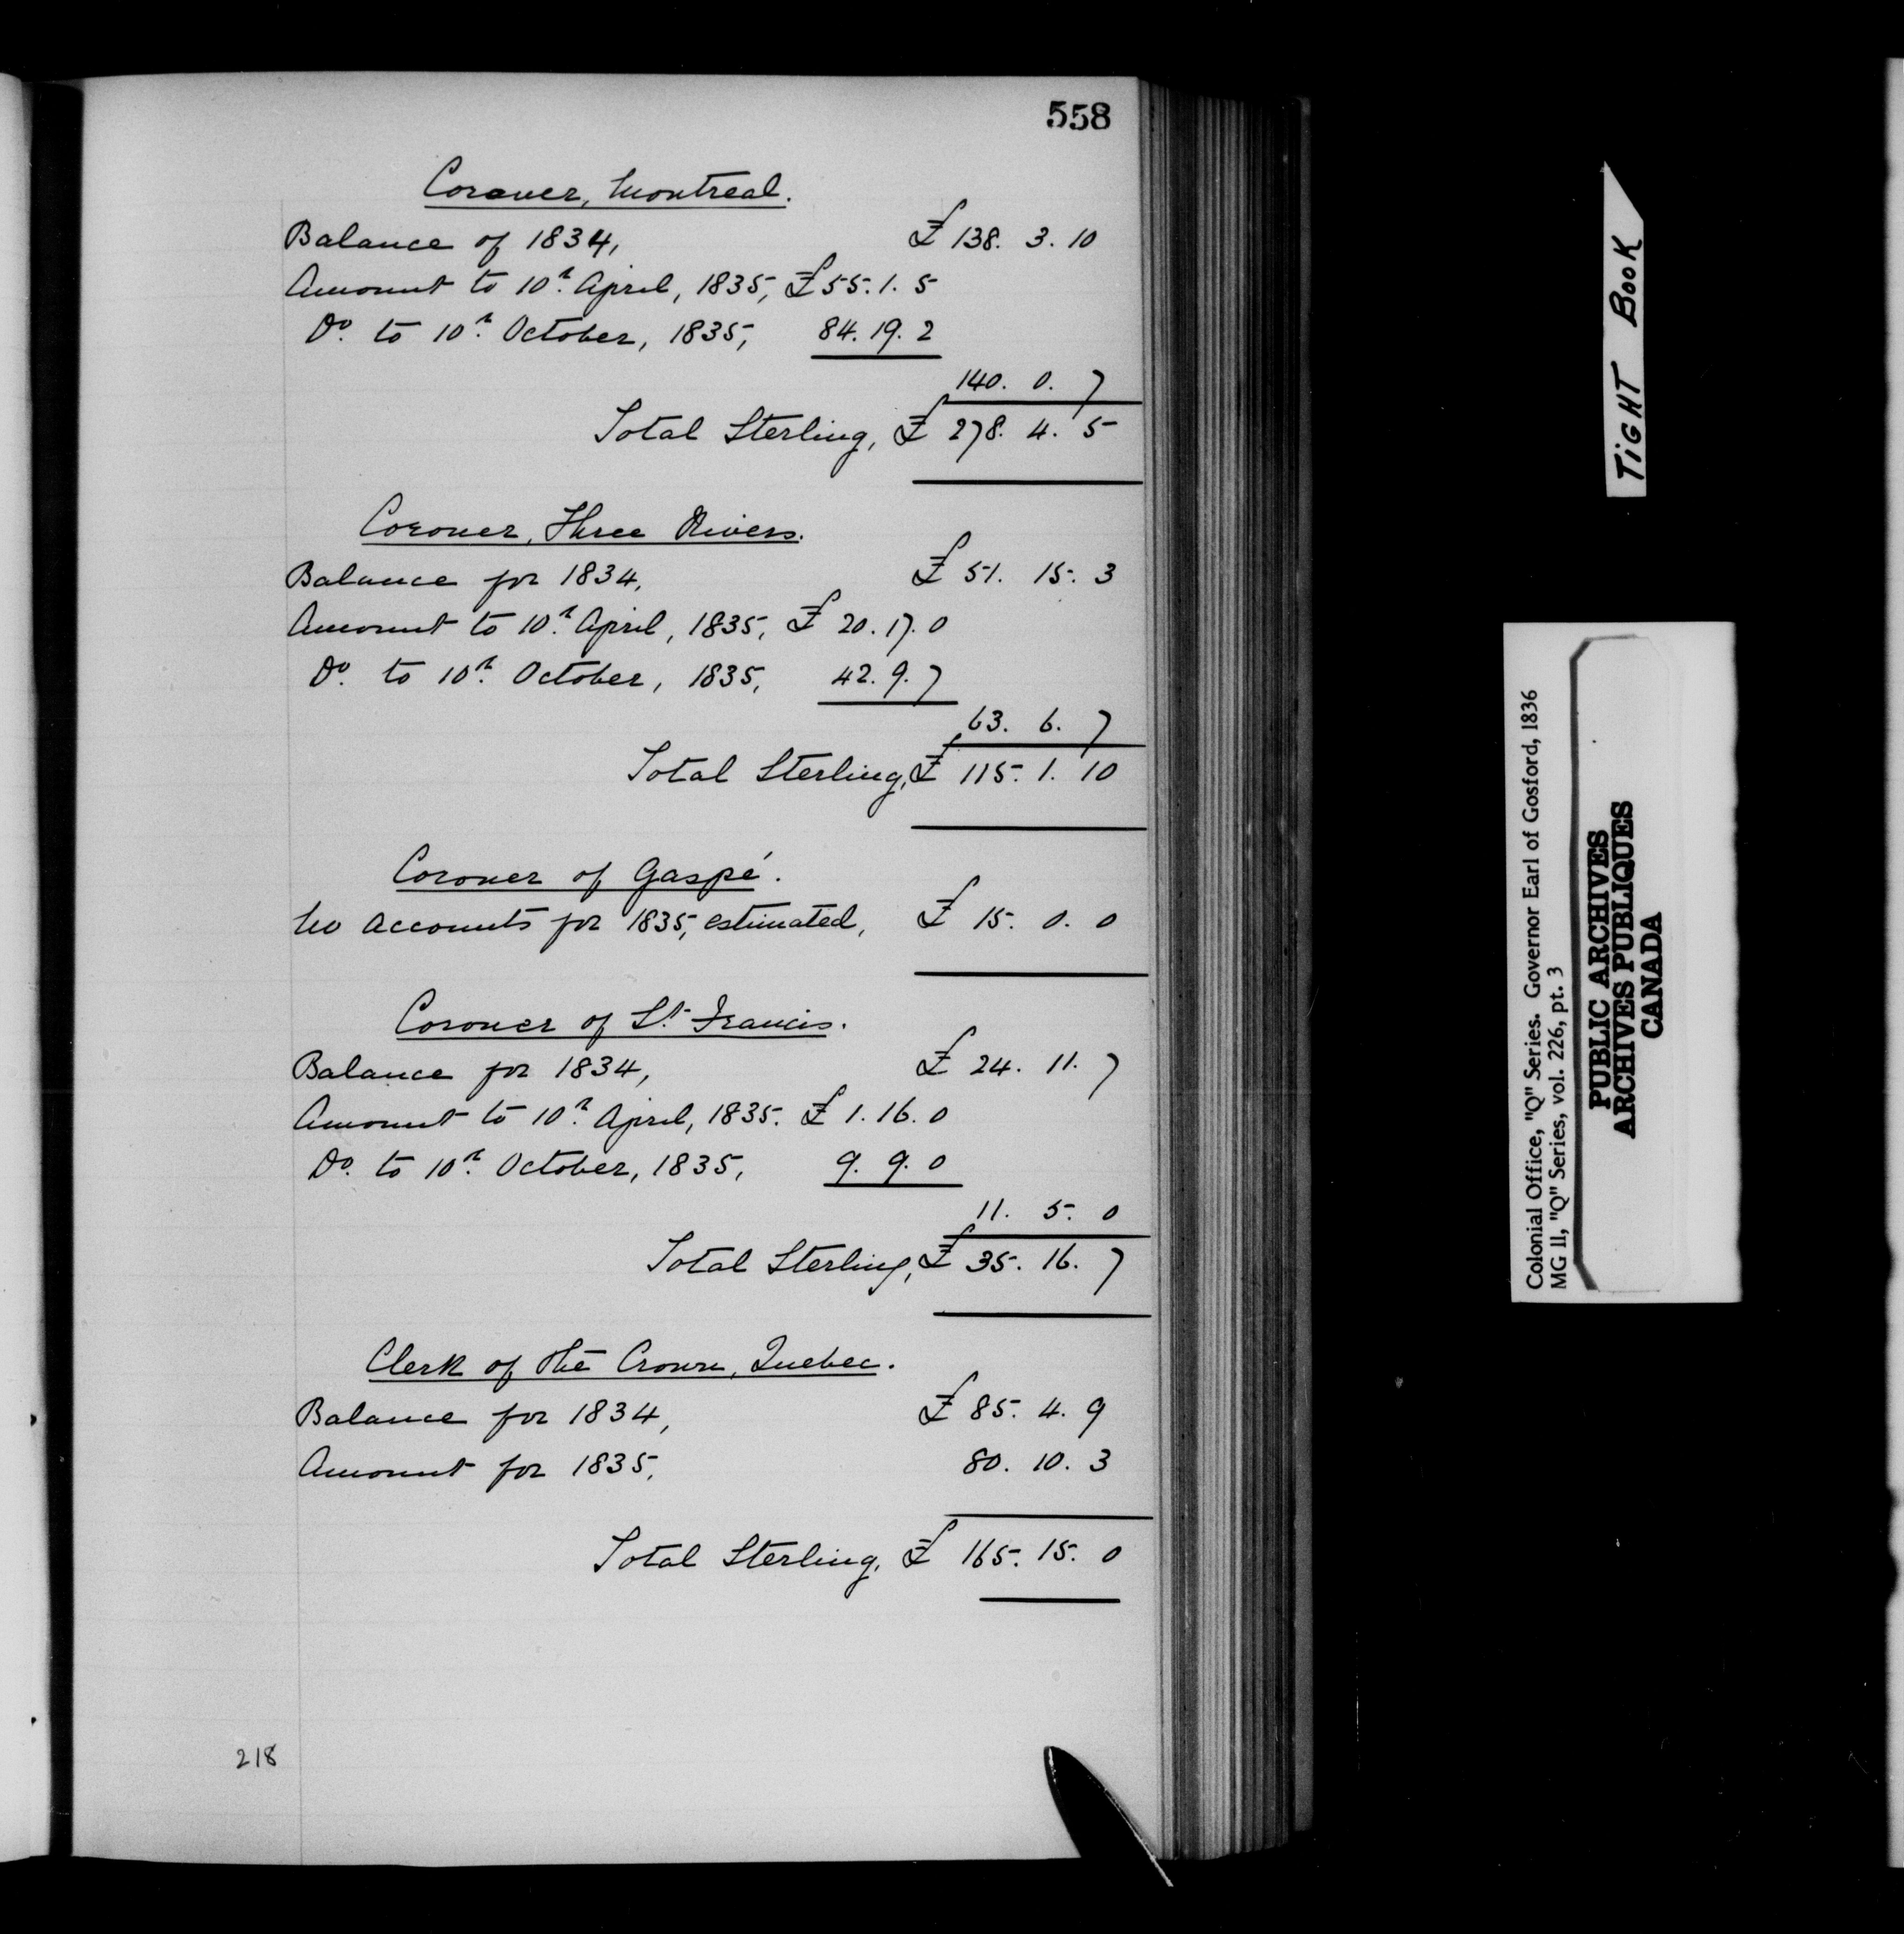 558
Coroner, Montreal.
Balance of 1834, £ 138. 3. 10
Amount to 10th April, 1835, £ 55. 1. 5
Do. to 10th October, 1835, 84. 19. 2
140. 0. 7
Total Sterling, £ 278. 4. 5
Coroner, Three Rivers.
Balance for 1834, £ 51. 15. 3
Amount to 10th April, 1835, £ 20. 17. 0
Do. to 10th October, 1835, 42. 9. 7
63. 6. 7
Total Sterling, £ 115. 1. 10
Coroner of Gaspé.
No accounts for 1835, estimated, £ 15. 0. 0
Coroner of St. Francis.
Balance for 1834, £ 24. 11. 7
Amount to 10th April, 1835. £ 1. 16. 0
Do. to 10th October, 1835, 9. 9. 0
11. 5. 0
Total Sterling, £ 35. 16. 7
Clerk of the Crown, Quebec.
Balance for 1834, £ 85. 4. 9
Amount for 1835, 80. 10. 3
Total Sterling, £ 165. 15. 0
218
TIGHT BOOK
Colonial Office, "Q" Series. Governor Earl of Gosford, 1836
MG 11, "Q" Series, vol. 226, pt. 3
PUBLIC ARCHIVES
ARCHIVES PUBLIQUES
CANADA